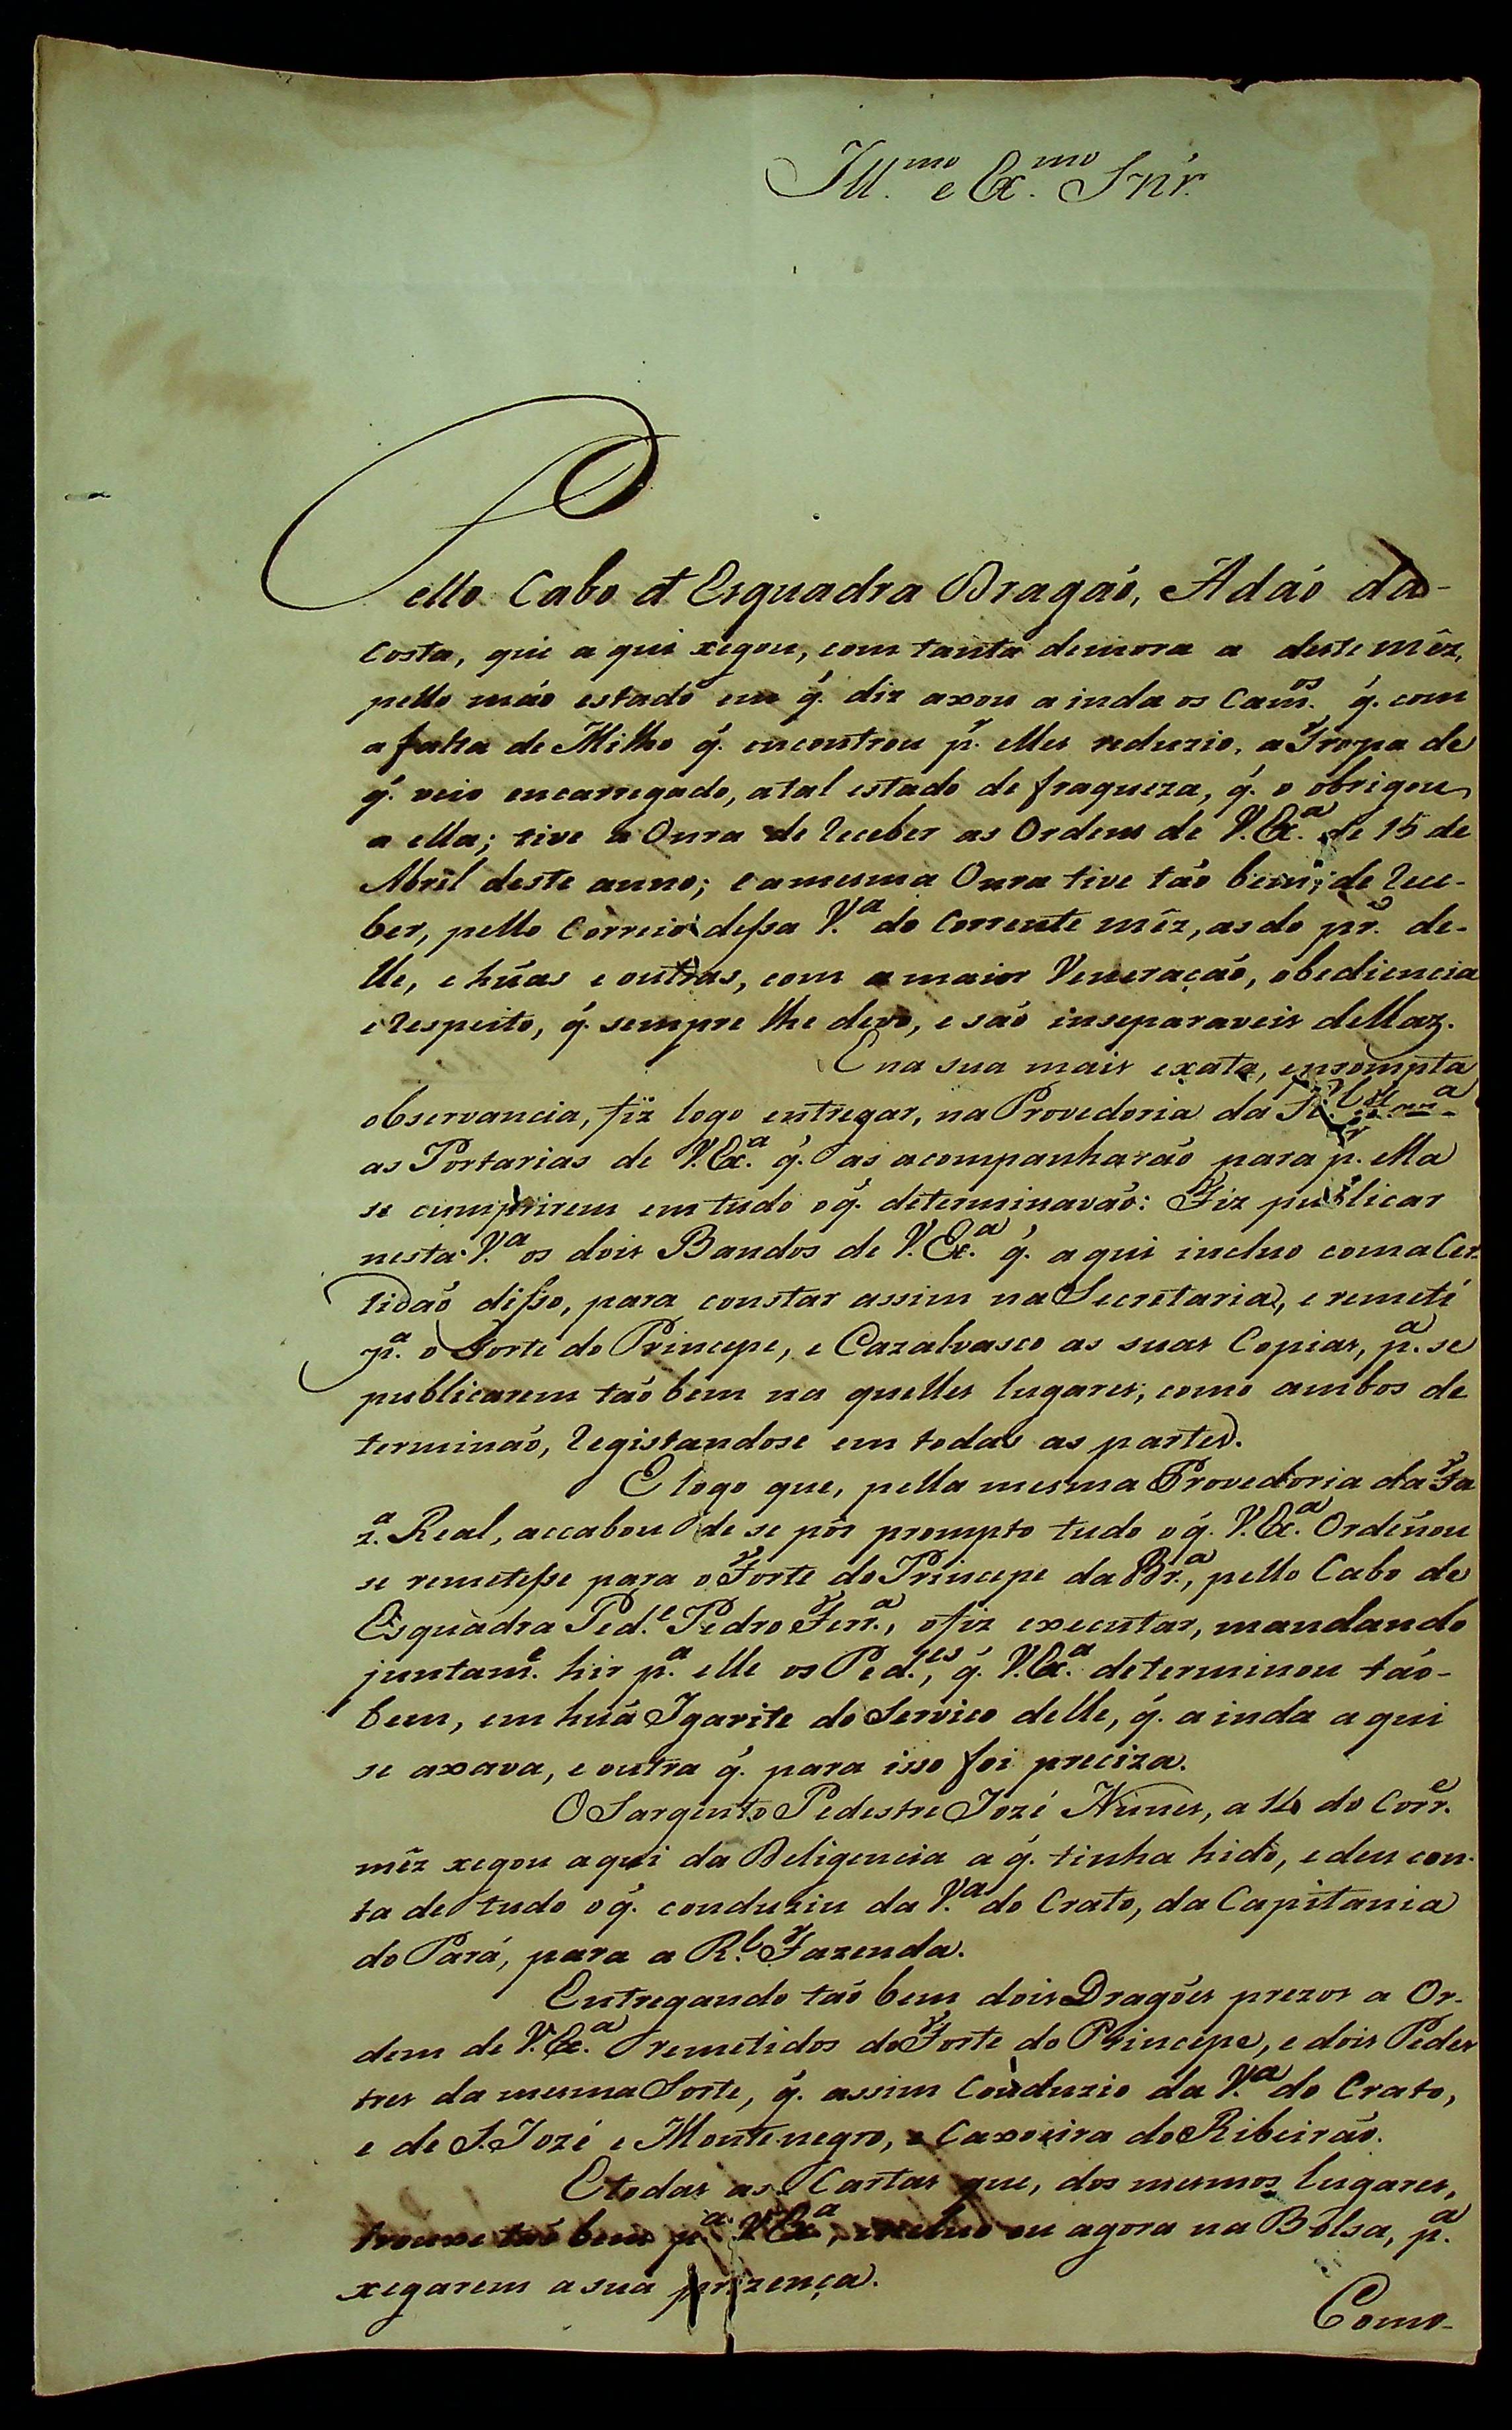 Ill.mo e Ex.mo Snr.
Pello Cabo d Esquadra Dragaõ, Adaõ da-
Costa, que a qui xegou, com tanta demora a deste mêz,
pello máo estado em q̃. diz axou a inda os Cam.os q̃. com
a falta de Milho q̃. encontrou p.r elles reduzio, a Tropa de
q̃. veio encarregado, atal estado de fraqueza, q̃. o obrigou
a ella; tive a Onra de receber as Ordens de V. Ex.a de 15 de
Abril deste anno; e amesma Onra tive táo bem, de rece-
ber, pello Correio dessa V.a do Corrente mêz, as do pr.o de-
lle, e húas e outras, com a maior Veneraçaõ, obediencia
e respeito, q̃. sempre lhe devo, e saõ inseparaveis dellaz.
E na sua mais exata, e prompta
observancia, fiz logo entregar, na Provedoria da
as Portarias de V. Ex.a q̃. as acompanharaõ para p.r ella
se cumprirem em tudo oq̃. determinavaõ: Fiz publicar
nesta V.a os dois Bandos de V. Ex.a q̃. a qui incluo coma Cer-
tidaõ disso, para constar assim na Secretaria, e remetí
p.a o Forte do Principe, e Cazalvasco as suas Copias, p.a se
publicarem taõ bem na quelles lugares, como ambos de
terminaõ, registandose em todas as partes.
E logo que, pella mesma Provedoria da Fa
z.a Real, accabou de se pôr prompto tudo oq̃. V. Ex.a Ordenou
se remetesse para o Forte do Principe da Br.a, pello Cabo de
Esquadra Ped.e Pedro Ferr.a, ofiz executar, mandando
juntam.e hir p.a elle os Ped.es, q̃. V. Ex.a determinou táo-
bem, em huá Igarite do Servico delle, q̃. a inda a qui
se axava, e outra q̃. para isso foi preciza.
O Sargento Pedestre Jozé Nunes, a 14 do Corr.e
mêz xegou aqui da Deligencia a q̃. tinha hido, e deu con-
ta de tudo oq̃. conduziu da V.a do Crato, da Capitania
do Pará, para a R.l Fazenda.
Entregando taõ bem dois Dragões prezos a Or-
dem de V. Ex.a remetidos do Forte do Principe, e dois Pedes
tres da mesma Sorte, q̃. assim Conduzio da V.a do Crato,
e de S. Jozé e Montenegro, e Caxoeira do Ribeiraõ.
E todas as Cartas que, dos mesmos lugares,
trouxe taõ bem p.a V. Ex.a, incluo eu agora na Bolsa, p.a
xegarem a sua prezença.
Como-